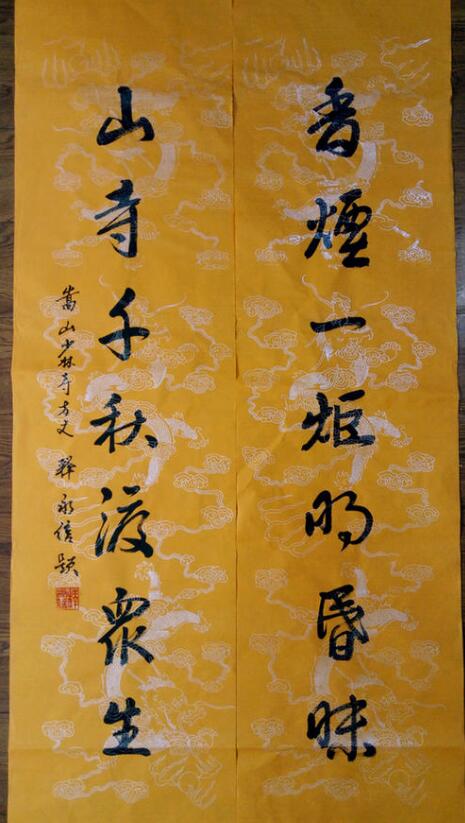 香煙一炬明昏昧
山寺千秋渡衆生
嵩山少林寺方丈 释永信題